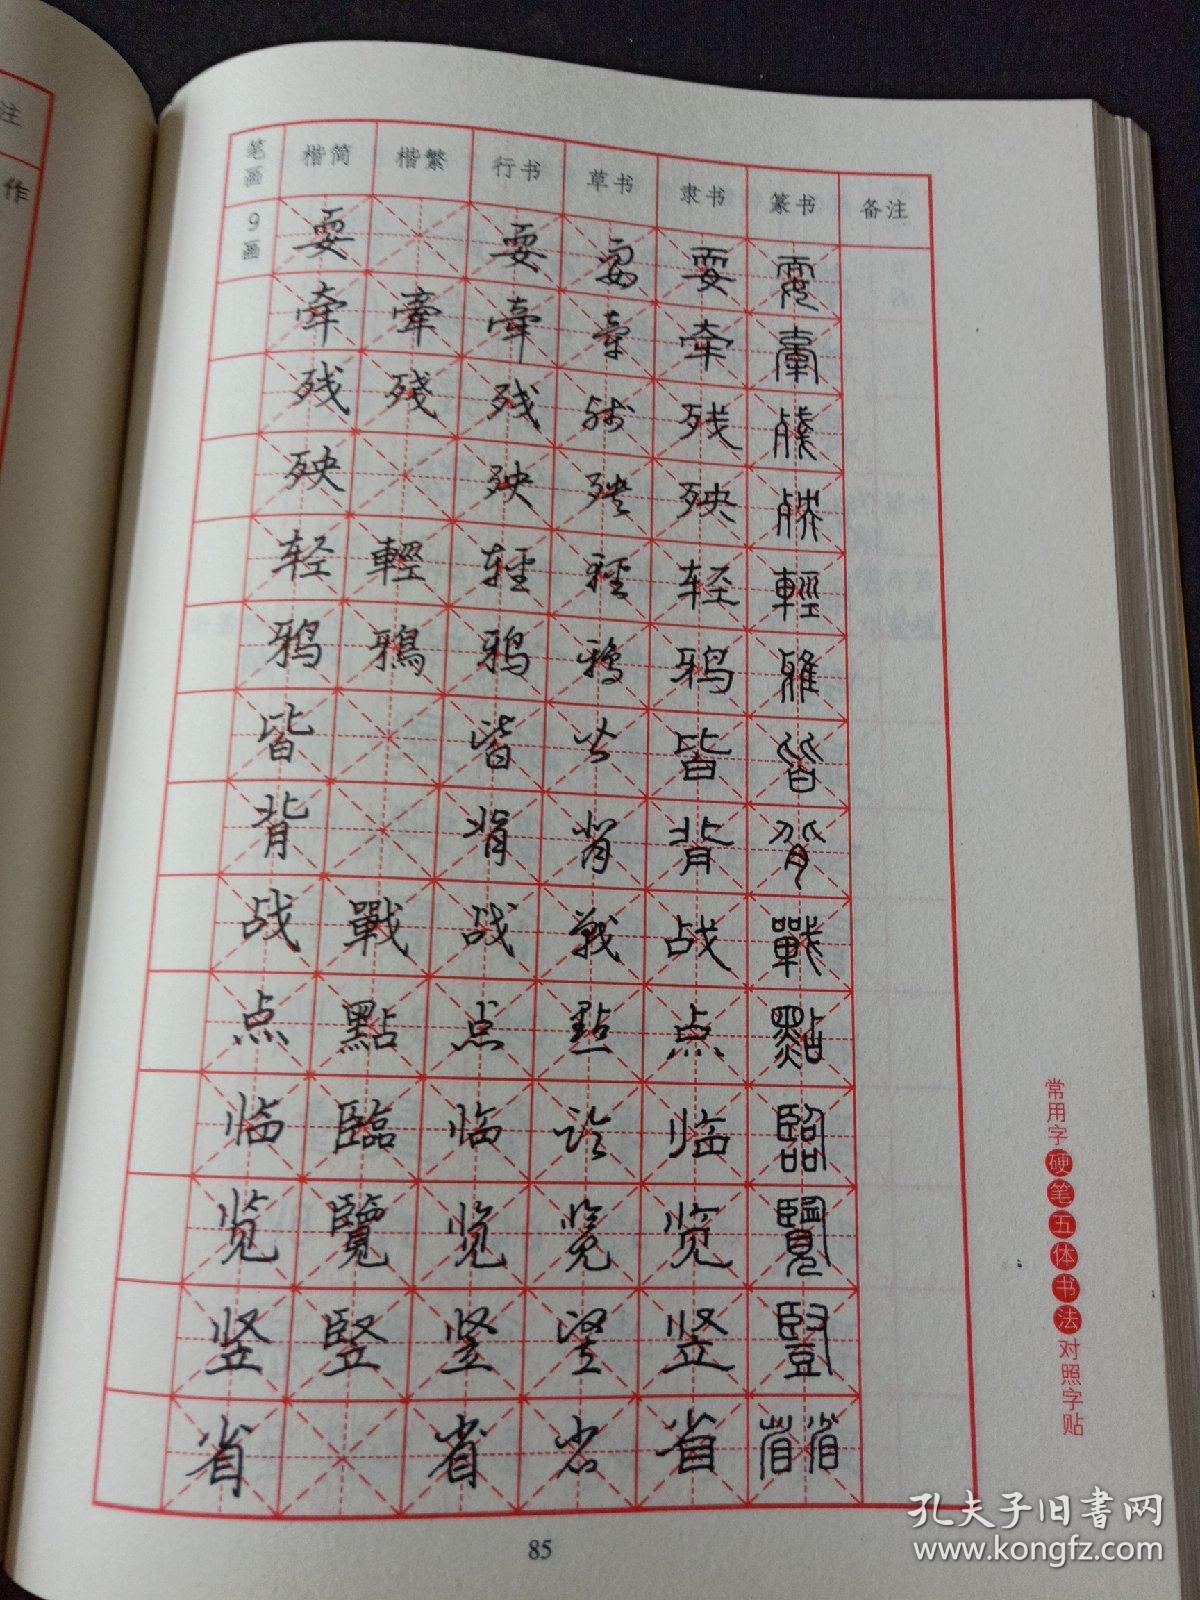 注
作
笔画 楷简 楷繁 行书 草书 隶书 篆书 备注
9画 耍 耍 耍 耍 耍
牵 牽 牽 牽 牵 牽
残 殘 残 残 残 殘
殃 殃 殃 殃 殃
轻 輕 轻 輕 轻 輕
鸦 鴉 鸦 鴉 鸦 雅
皆 皆 皆 皆 皆
背 背 背 背 背
战 戰 战 戰 战 戰
点 點 点 點 点 點
临 臨 临 临 临 臨
览 覽 览 览 览 覽
竖 竪 竖 竖 竖 豎
省 省 省 省 省 省
常用字硬笔五体书法对照字贴
85
孔夫子旧书网
www.kongfz.com